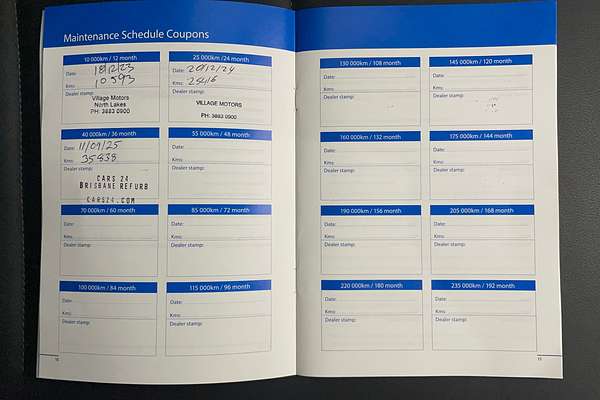 Maintenance Schedule Coupons
10 000km / 12 month
Date: 18/12/23
Kms: 10593
Dealer stamp:
Village Motors
North Lakes
PH: 3883 0900
25 000km /24 month
Date: 20/12/24
Kms:
Dealer stamp:
VILLAGE MOTORS
PH: 3883 0900
40 000km / 36 month
Date: 11/09/25
Kms: 35838
Dealer stamp:
CARS 24
BRISBANE REFURB
CARS24.COM
55 000km / 48 month
Date:
Kms:
Dealer stamp:
70 000km / 60 month
Date:
Kms:
Dealer stamp:
85 000km / 72 month
Date:
Kms:
Dealer stamp:
100 000km / 84 month
Date:
Kms:
Dealer stamp:
115 000km / 96 month
Date:
Kms:
Dealer stamp:
10
130 000km / 108 month
Date:
Kms:
Dealer stamp:
145 000km / 120 month
Date:
Kms:
Dealer stamp:
160 000km / 132 month
Date:
Kms:
Dealer stamp:
175 000km / 144 month
Date:
Kms:
Dealer stamp:
190 000km / 156 month
Date:
Kms:
Dealer stamp:
205 000km / 168 month
Date:
Kms:
Dealer stamp:
220 000km / 180 month
Date:
Kms:
Dealer stamp:
235 000km / 192 month
Date:
Kms:
Dealer stamp:
11